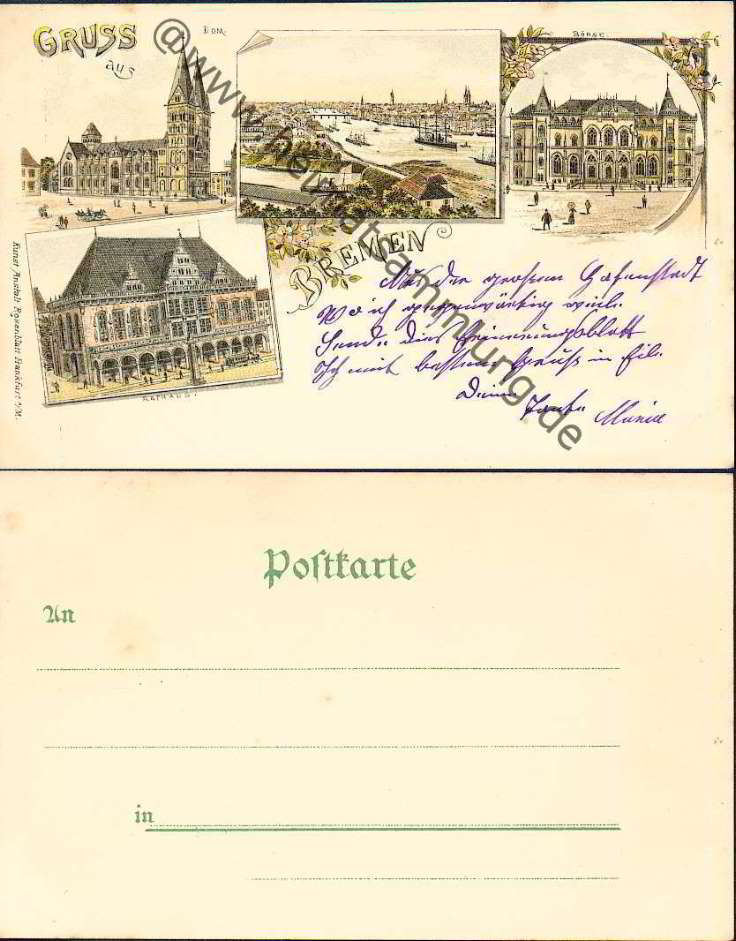 GRUSS
aus
DOM.
BÖRSE.
BREMEN
RATHAUS.
Kunst Anstalt Rosenblatt Frankfurt a/M.
@www.heimatsammlung.de
Aus der großen Hafenstadt
Wo ich gegenwärtig weile
Sende dies Erinnerungsblatt
Ich mit bestem Gruß in Eil.
Deine Tante Maria
Poſtkarte
An
in